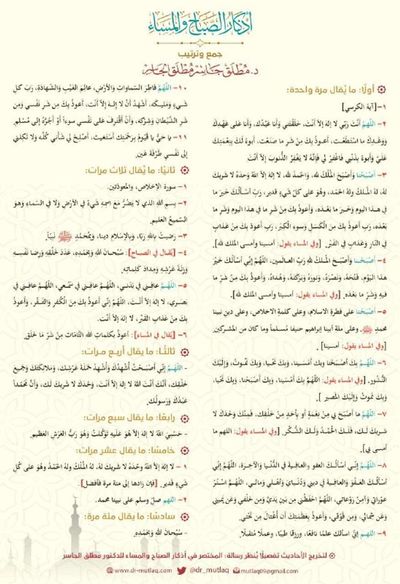 أذكار الصباح والمساء
جمع وترتيب
د. مطلق جاسر مطلق الجاسر
أولًا: ما يُقال مرة واحدة:
١- [آية الكرسي]
٢- اللَّهُمَّ أَنْتَ رَبِّي لَا إِلَهَ إِلَّا أَنْتَ، خَلَقْتَنِي وَأَنَا عَبْدُكَ، وَأَنَا عَلَى عَهْدِكَ
وَوَعْدِكَ مَا اسْتَطَعْتُ، أَعُوذُ بِكَ مِنْ شَرِّ مَا صَنَعْتُ، أَبُوءُ لَكَ بِنِعْمَتِكَ
عَلَيَّ وَأَبُوءُ بِذَنْبِي فَاغْفِرْ لِي فَإِنَّهُ لَا يَغْفِرُ الذُّنُوبَ إِلَّا أَنْتَ
٣- أَصْبَحْنَا وَأَصْبَحَ الْمُلْكُ لِلَّهِ، وَالْحَمْدُ لِلَّهِ، لَا إِلَهَ إِلَّا اللَّهُ وَحْدَهُ لَا شَرِيكَ
لَهُ، لَهُ الْمُلْكُ وَلَهُ الْحَمْدُ، وَهُوَ عَلَى كُلِّ شَيْءٍ قَدِيرٌ، رَبِّ أَسْأَلُكَ خَيْرَ مَا
فِي هَذَا الْيَوْمِ وَخَيْرَ مَا بَعْدَهُ، وَأَعُوذُ بِكَ مِنْ شَرِّ مَا فِي هَذَا الْيَوْمِ وَشَرِّ مَا
بَعْدَهُ، رَبِّ أَعُوذُ بِكَ مِنَ الْكَسَلِ وَسُوءِ الْكِبَرِ، رَبِّ أَعُوذُ بِكَ مِنْ عَذَابٍ
فِي النَّارِ وَعَذَابٍ فِي الْقَبْرِ. [وفي المساء يقول: أمسينا وأمسى الملك لله].
٤- أَصْبَحْنَا وَأَصْبَحَ الْمُلْكُ لِلَّهِ رَبِّ الْعَالَمِينَ، اللَّهُمَّ إِنِّي أَسْأَلُكَ خَيْرَ
هَذَا الْيَوْمِ، فَتْحَهُ، وَنَصْرَهُ، وَنُورَهُ وَبَرَكَتَهُ، وَهُدَاهُ، وَأَعُوذُ بِكَ مِنْ شَرِّ مَا
فِيهِ وَشَرِّ مَا بَعْدَهُ. [وفي المساء يقول: أمسينا وأمسى الملك لله].
٥- أَصْبَحْنَا عَلَى فِطْرَةِ الْإِسْلَامِ، وَعَلَى كَلِمَةِ الْإِخْلَاصِ، وَعَلَى دِينِ نَبِيِّنَا
محمد ﷺ وعلى ملة أبينا إبراهيم حنيفا مسلما وما كان من المشركين
[وفي المساء يقول: أمسينا].
٦- اللَّهُمَّ بِكَ أَصْبَحْنَا وَبِكَ أَمْسَيْنَا، وَبِكَ نَحْيَا، وَبِكَ نَمُوتُ، وَإِلَيْكَ
النُّشُورُ. [وفي المساء يقول: اللَّهُمَّ بِكَ أَمْسَيْنَا، وَبِكَ أَصْبَحْنَا، وَبِكَ نَحْيَا،
وَبِكَ نَمُوتُ وَإِلَيْكَ الْمَصِيرُ].
٧- اللَّهُمَّ مَا أَصْبَحَ بِي مِنْ نِعْمَةٍ أَوْ بِأَحَدٍ مِنْ خَلْقِكَ، فَمِنْكَ وَحْدَكَ لَا
شَرِيكَ لَكَ، فَلَكَ الْحَمْدُ وَلَكَ الشُّكْرُ. [وفي المساء يقول: اللهم ما
أمسى بي].
٨- اللَّهُمَّ إِنِّي أَسْأَلُكَ الْعَفْوَ وَالْعَافِيَةَ فِي الدُّنْيَا وَالْآخِرَةِ، اللَّهُمَّ إِنِّي
أَسْأَلُكَ الْعَفْوَ وَالْعَافِيَةَ فِي دِينِي وَدُنْيَايَ وَأَهْلِي وَمَالِي، اللَّهُمَّ اسْتُرْ
عَوْرَاتِي وَآمِنْ رَوْعَاتِي، اللَّهُمَّ احْفَظْنِي مِنْ بَيْنِ يَدَيَّ وَمِنْ خَلْفِي وَعَنْ يَمِينِي
وَعَنْ شِمَالِي، وَمِنْ فَوْقِي، وَأَعُوذُ بِعَظَمَتِكَ أَنْ أُغْتَالَ مِنْ تَحْتِي.
٩- اللَّهُمَّ إِنِّي أَسْأَلُكَ عِلْمًا نَافِعًا، وَرِزْقًا طَيِّبًا، وَعَمَلًا مُتَقَبَّلًا
١٠- اللَّهُمَّ فَاطِرَ السَّمَاوَاتِ وَالْأَرْضِ، عَالِمَ الْغَيْبِ وَالشَّهَادَةِ، رَبَّ كُلِّ
شَيْءٍ وَمَلِيكَهُ، أَشْهَدُ أَنْ لَا إِلَهَ إِلَّا أَنْتَ، أَعُوذُ بِكَ مِنْ شَرِّ نَفْسِي وَمِنْ
شَرِّ الشَّيْطَانِ وَشِرْكِهِ، وَأَنْ أَقْتَرِفَ عَلَى نَفْسِي سُوءًا أَوْ أَجُرَّهُ إِلَى مُسْلِمٍ.
١١- يَا حَيُّ يَا قَيُّومُ بِرَحْمَتِكَ أَسْتَغِيثُ، أَصْلِحْ لِي شَأْنِي كُلَّهُ وَلَا تَكِلْنِي
إِلَى نَفْسِي طَرْفَةَ عَيْنٍ.
ثانيًا: ما يقال ثلاث مرات:
١- سورة الإخلاص، والمعوذتين.
٢- بِسْمِ اللَّهِ الَّذِي لَا يَضُرُّ مَعَ اسْمِهِ شَيْءٌ فِي الْأَرْضِ وَلَا فِي السَّمَاءِ وَهُوَ
السَّمِيعُ الْعَلِيمُ.
٣- رَضِيتُ بِاللَّهِ رَبًّا، وَبِالْإِسْلَامِ دِينًا، وَبِمُحَمَّدٍ ﷺ نَبِيًّا.
٤- [يقال في الصباح]: سُبْحَانَ اللَّهِ وَبِحَمْدِهِ، عَدَدَ خَلْقِهِ وَرِضَا نَفْسِهِ
وَزِنَةَ عَرْشِهِ وَمِدَادَ كَلِمَاتِهِ.
٥- اللَّهُمَّ عَافِنِي فِي بَدَنِي، اللَّهُمَّ عَافِنِي فِي سَمْعِي، اللَّهُمَّ عَافِنِي فِي
بَصَرِي، لَا إِلَهَ إِلَّا أَنْتَ، اللَّهُمَّ إِنِّي أَعُوذُ بِكَ مِنَ الْكُفْرِ وَالْفَقْرِ، وَأَعُوذُ
بِكَ مِنْ عَذَابِ الْقَبْرِ، لَا إِلَهَ إِلَّا أَنْتَ.
٦- [يقال في المساء]: أَعُوذُ بِكَلِمَاتِ اللَّهِ التَّامَّاتِ مِنْ شَرِّ مَا خَلَقَ.
ثالثًا: ما يقال أربع مرات:
- اللَّهُمَّ إِنِّي أَصْبَحْتُ أُشْهِدُكَ وَأُشْهِدُ حَمَلَةَ عَرْشِكَ، وَمَلَائِكَتَكَ وَجَمِيعَ
خَلْقِكَ، أَنَّكَ أَنْتَ اللَّهُ لَا إِلَهَ إِلَّا أَنْتَ، وَحْدَكَ لَا شَرِيكَ لَكَ، وَأَنَّ مُحَمَّدًا
عَبْدُكَ وَرَسُولُكَ.
رابعًا: ما يقال سبع مرات:
- حَسْبِيَ اللَّهُ لَا إِلَهَ إِلَّا هُوَ عَلَيْهِ تَوَكَّلْتُ وَهُوَ رَبُّ الْعَرْشِ الْعَظِيمِ.
خامسًا: ما يقال عشر مرات:
١- لَا إِلَهَ إِلَّا اللَّهُ وَحْدَهُ لَا شَرِيكَ لَهُ، لَهُ الْمُلْكُ وَلَهُ الْحَمْدُ وَهُوَ عَلَى كُلِّ
شَيْءٍ قَدِيرٌ. [فإن زادها إلى مئة مرة فأفضل]
٢- اللهم صل وسلم على نبينا محمد.
سادسًا: ما يقال مئة مرة:
- سُبْحَانَ اللَّهِ وَبِحَمْدِهِ.
لتخريج الأحاديث تفصيلًا يُنظر رسالة: المختصر في أذكار الصباح والمساء للدكتور مطلق الجاسر
www.dr-mutlaq.com @dr_mutlaq mutlaq09@gmail.com